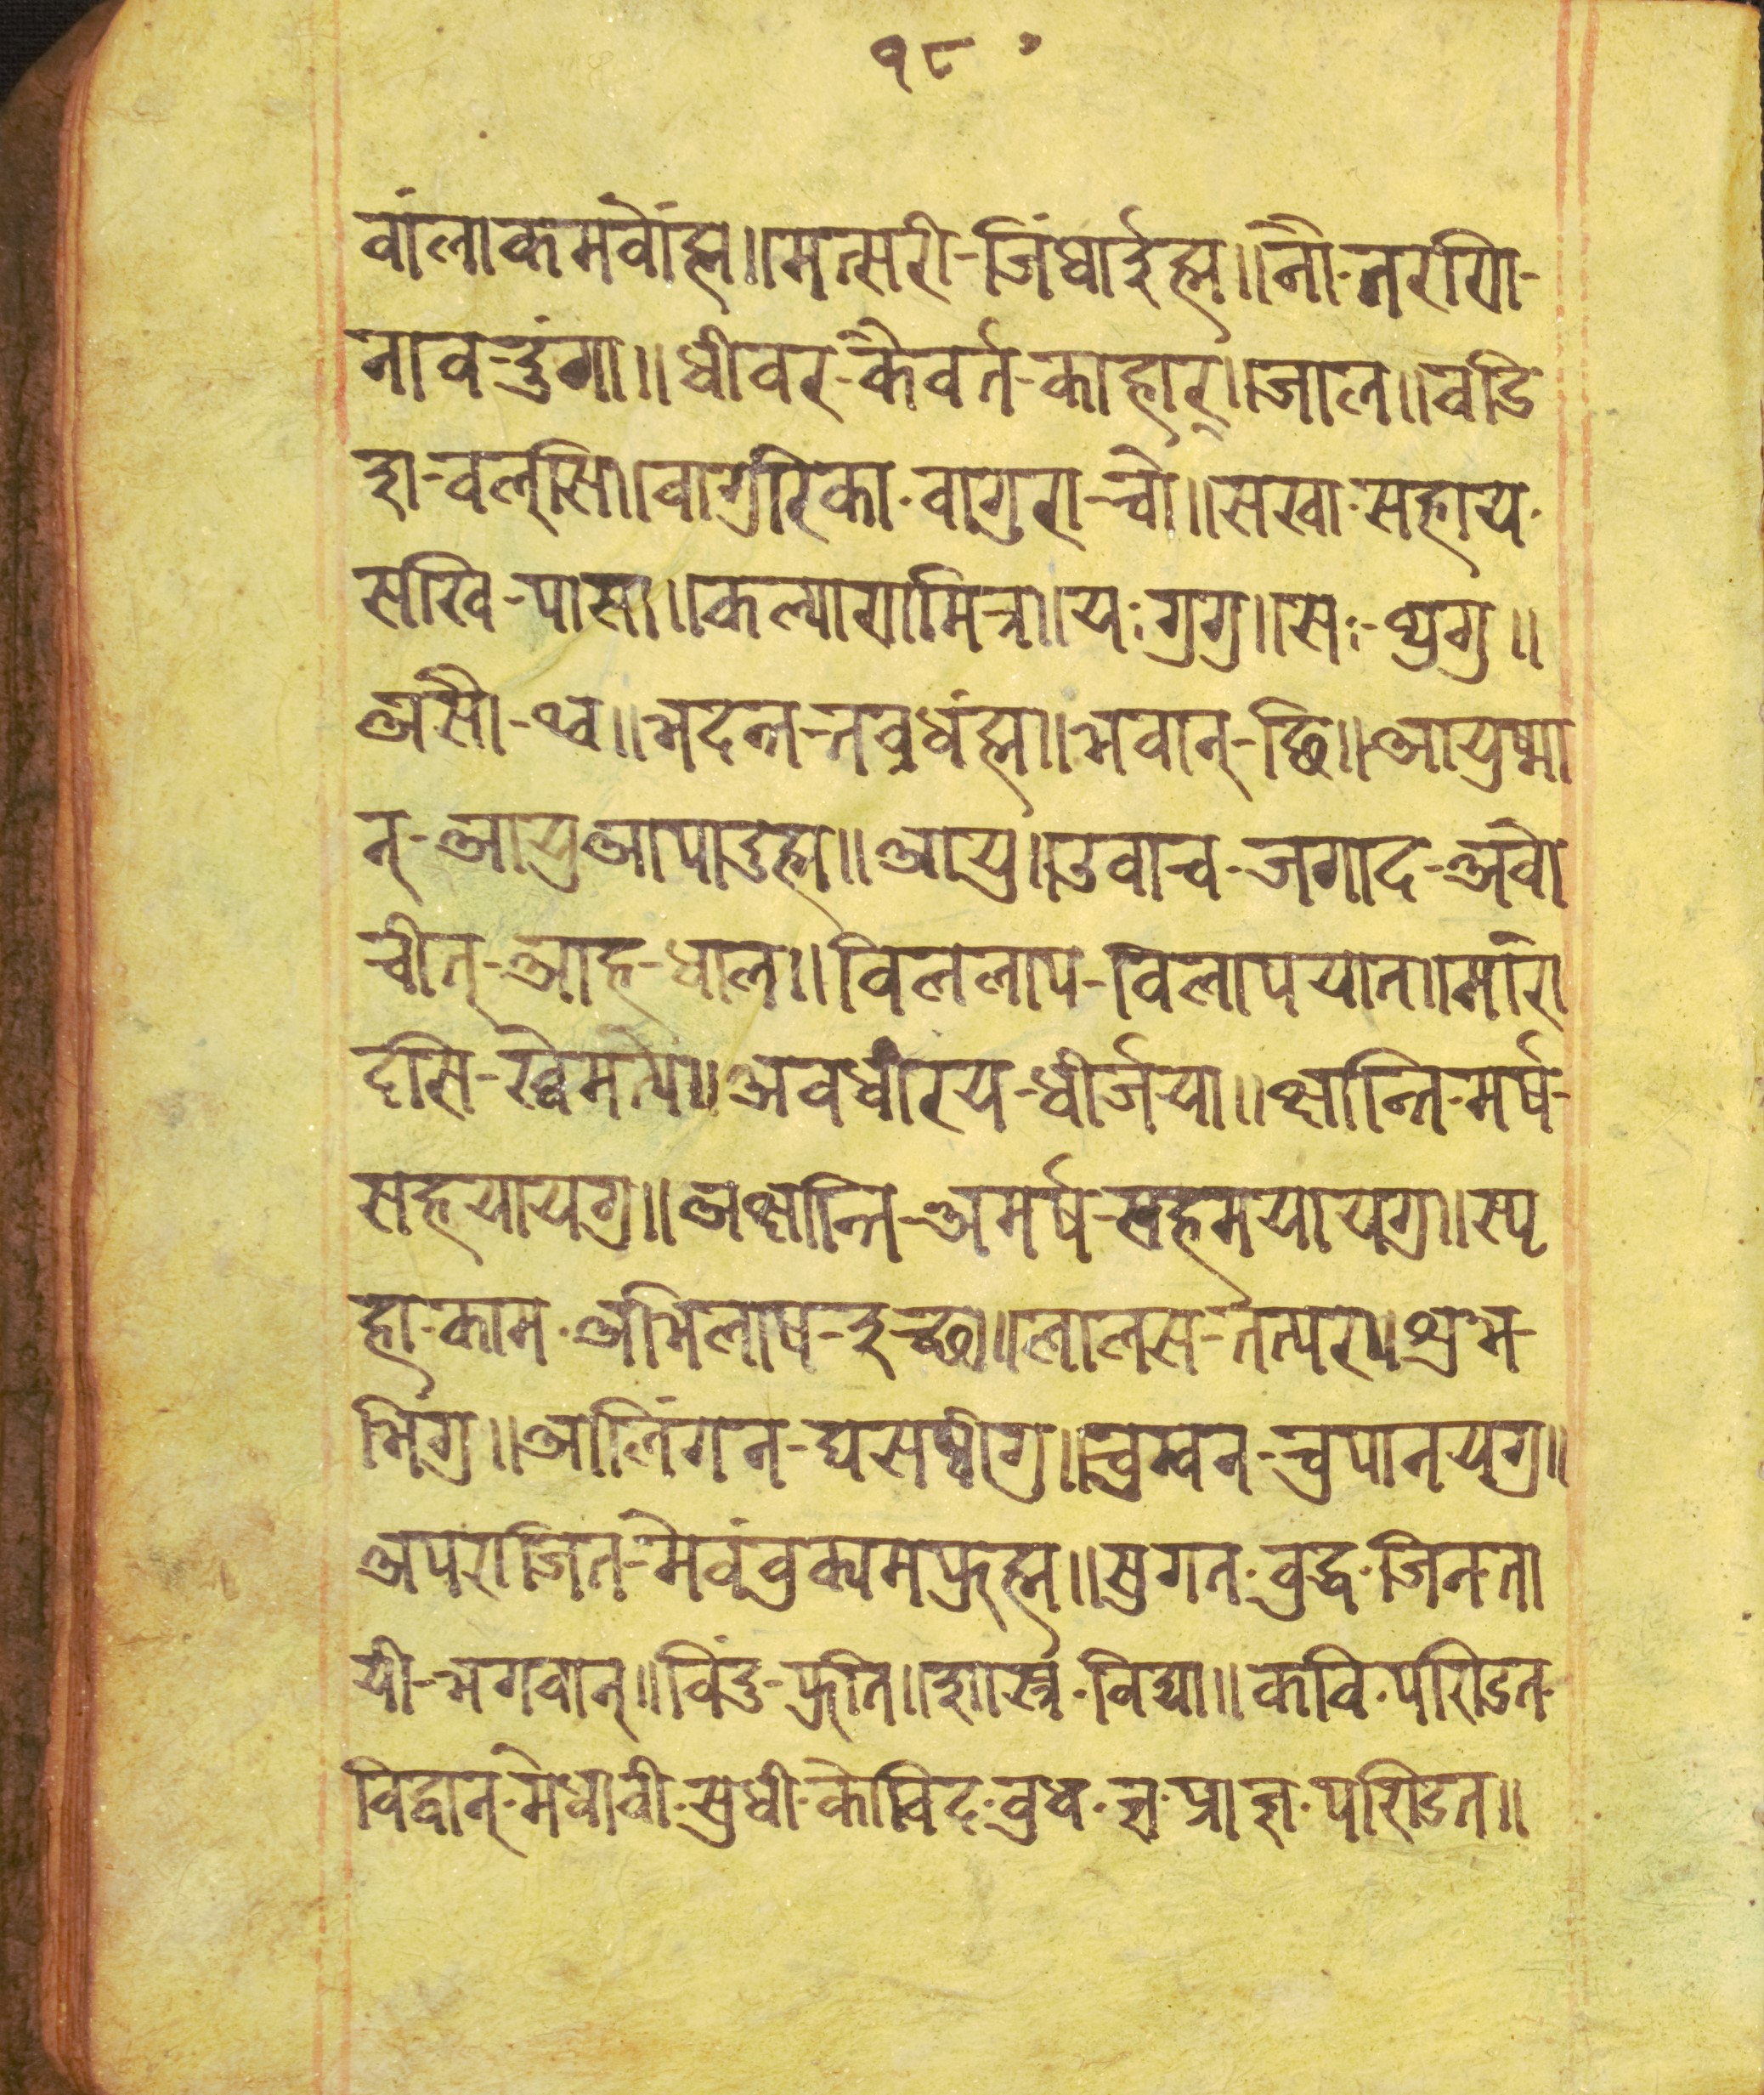 १८
वांलाकमवोंह्म॥मत्सरी-जिंघार्इह्म॥नौ-तरणि-
नाव-डुंगा॥धीवर-कैवर्त-काहार्॥जाल॥वडि
श-वल्सि॥वागुरिका-वागुरा-चो॥सखा-सहाय-
सखि-पासा॥कल्याणमित्र॥यः-गुगु॥सः-थुगु॥
असौ-थ्व॥भदन्त-तवधंह्म॥भवान्-छि॥आयुष्मा
न्-आयुआपाडह्म॥आयु॥उवाच-जगाद-अवो
चीत्-आह-धाल॥विललाप-विलापयात॥मारो
दसि-ख्वेमत्ये॥अवधारय-धीर्जया॥क्षान्ति-मर्ष-
सहयायगु॥अक्षान्ति-अमर्ष-सहमयायगु॥स्पृ
हा-काम-अभिलाष-इच्छा॥लालस-तत्पर॥शुभ-
भिंगु॥आलिंगन-घसपीगु॥चुम्वन-चुपानयगु॥
अपराजित-मेवंवुक्यमफुह्म॥सुगत-वुद्ध-जिन-ता
यी-भगवान्॥विंदु-फुति॥शास्त्र-विद्या॥कवि-पण्डित-
विद्वान्-मेधावी-सुधी-कोविद-वुध-ज्ञ-प्राज्ञ-पण्डित॥